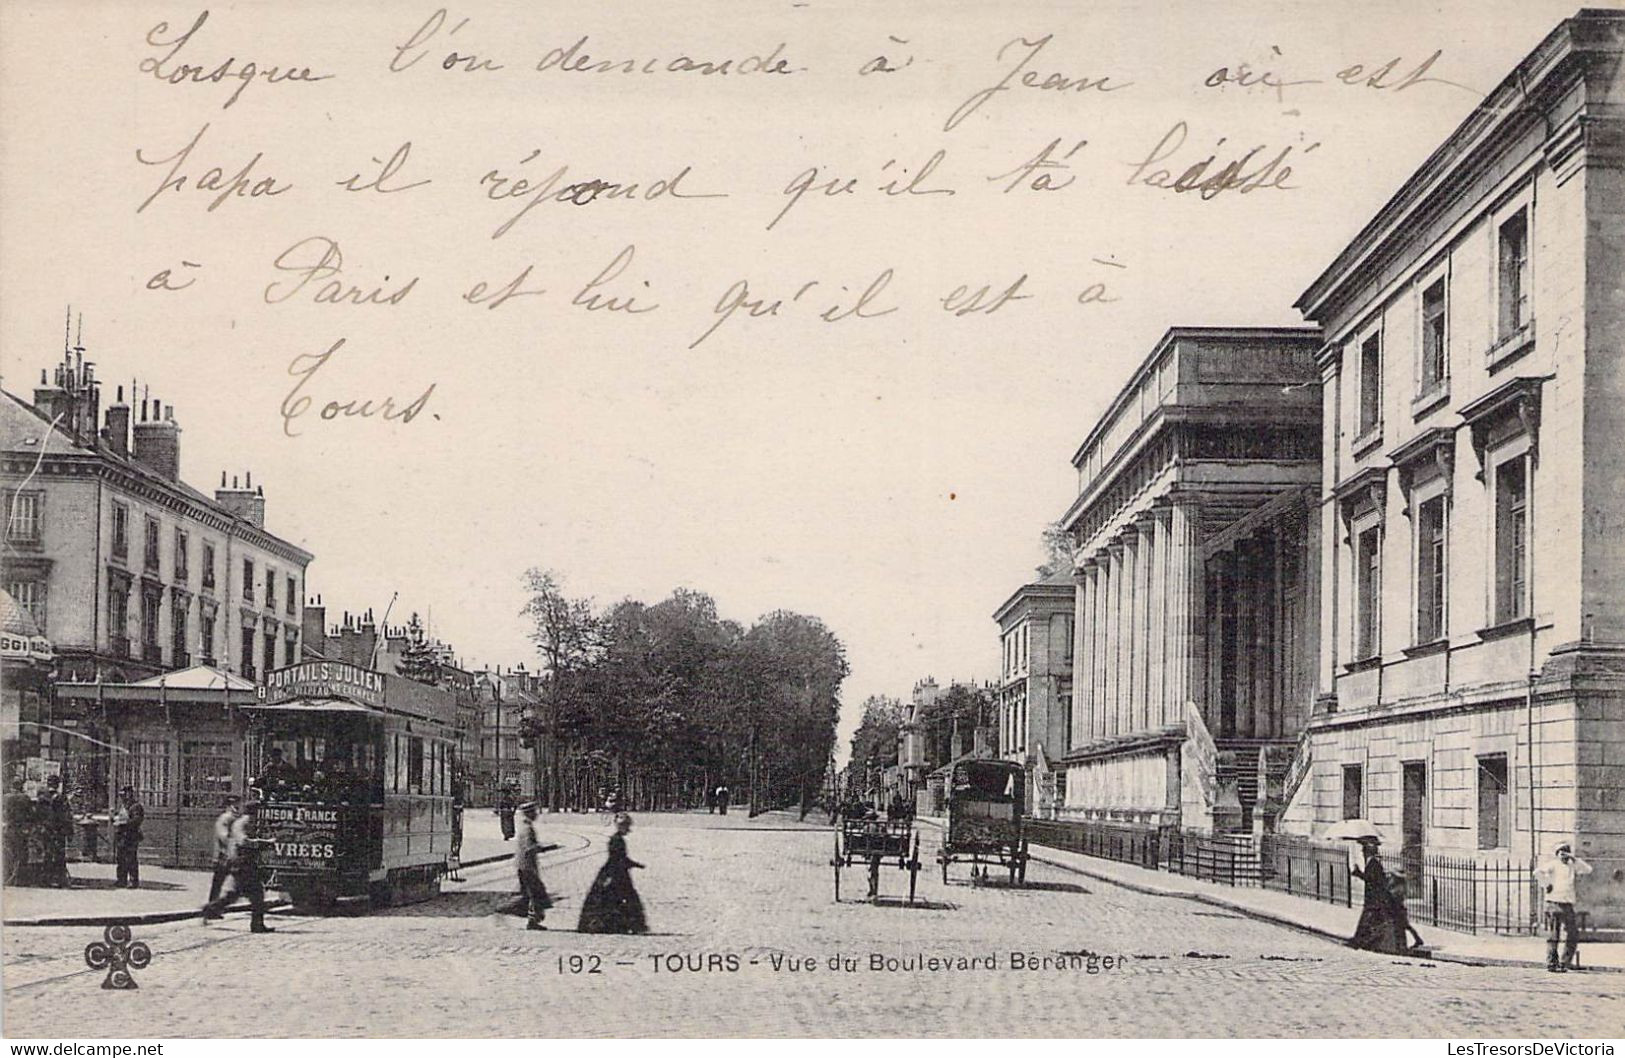 Lorsque l'on demande à Jean où est
papa il répond qu'il t'a laissé
à Paris et lui qu'il est à
Tours.
PORTAIL St JULIEN
MAISON FRANCK
TOURS
192 - TOURS - Vue du Boulevard Béranger
CCCC
LesTresorsDeVictoria